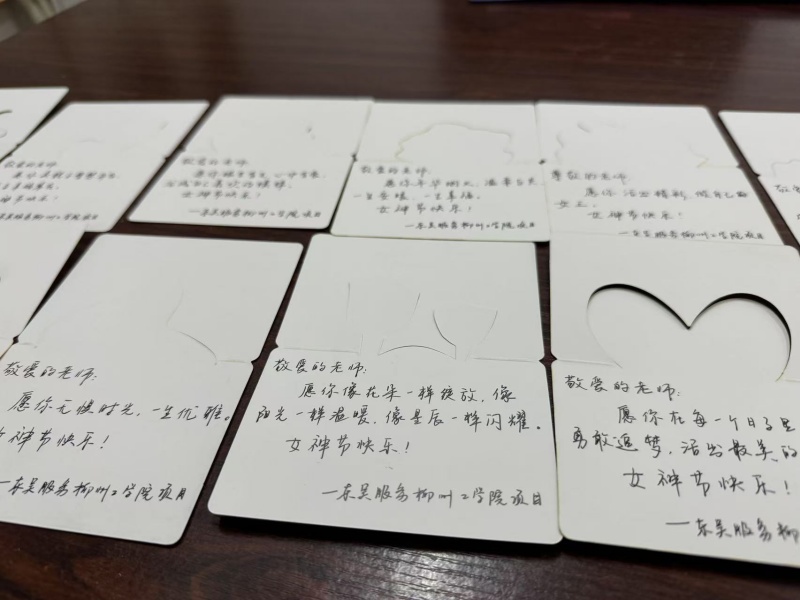 敬爱的老师:
女神节快乐!
—东吴服务柳州工学院项目
敬爱的老师:
女神节快乐!
—东吴服务柳州工学院项目
敬爱的老师:
愿你年华
一生
女神节快乐!
—东吴服务柳州工学院项目
尊敬的老师:
愿你活出精彩, 做自己的
女王。
女神节快乐!
—东吴服务柳州工学院项目
敬爱的老师:
愿你无惧时光, 一生优雅。
女神节快乐!
—东吴服务柳州工学院项目
敬爱的老师:
愿你像花朵一样绽放, 像
阳光一样温暖, 像星辰一样闪耀。
女神节快乐!
—东吴服务柳州工学院项目
敬爱的老师:
愿你在每一个日子里
勇敢追梦, 活出最美的
女神节快乐!
—东吴服务柳